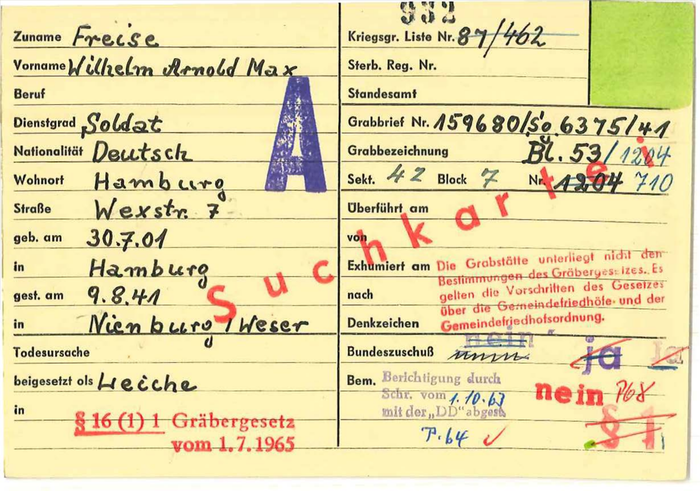 932
Zuname Freise
Vorname Wilhelm Arnold Max
Beruf
Dienstgrad Soldat
Nationalität Deutsch
Wohnort Hamburg
Straße Wexstr. 7
geb. am 30.7.01
in Hamburg
gest. am 9.8.41
in Nienburg/Weser
Todesursache
beigesetzt als Leiche
in
§ 16 (1) 1 Gräbergesetz
vom 1.7.1965
A
Suchkartei
Kriegsgr. Liste Nr. 87/462
Sterb. Reg. Nr.
Standesamt
Grabbrief Nr. 159680/So 6375/41
Grabbezeichnung Bl. 53/1204
Sekt. 42 Block 7 Nr. 1204 710
Überführt am
von
Exhumiert am
nach
Denkzeichen
Die Grabstätte unterliegt nicht den
Bestimmungen des Gräbergesetzes. Es
gelten die Vorschriften des Gesetzes
über die Gemeindefriedhöfe und der
Gemeindefriedhofsordnung.
nein
Bundeszuschuß ja ja
Bem. Berichtigung durch
Schr. vom 1.10.63
mit der „DD" abgest.
P.64
nein P68
§ 1